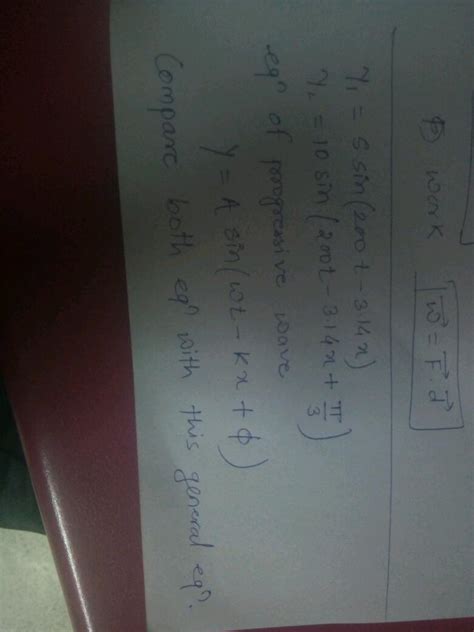 B) work |w⃗ = F⃗.d⃗|
y₁ = 5 sin(200t - 3.14x)
y₂ = 10 sin(200t - 3.14x + π/3)
eqⁿ of progressive wave
y = A sin(wt - kx + ϕ)
Compare both eqⁿ with this general eqⁿ.